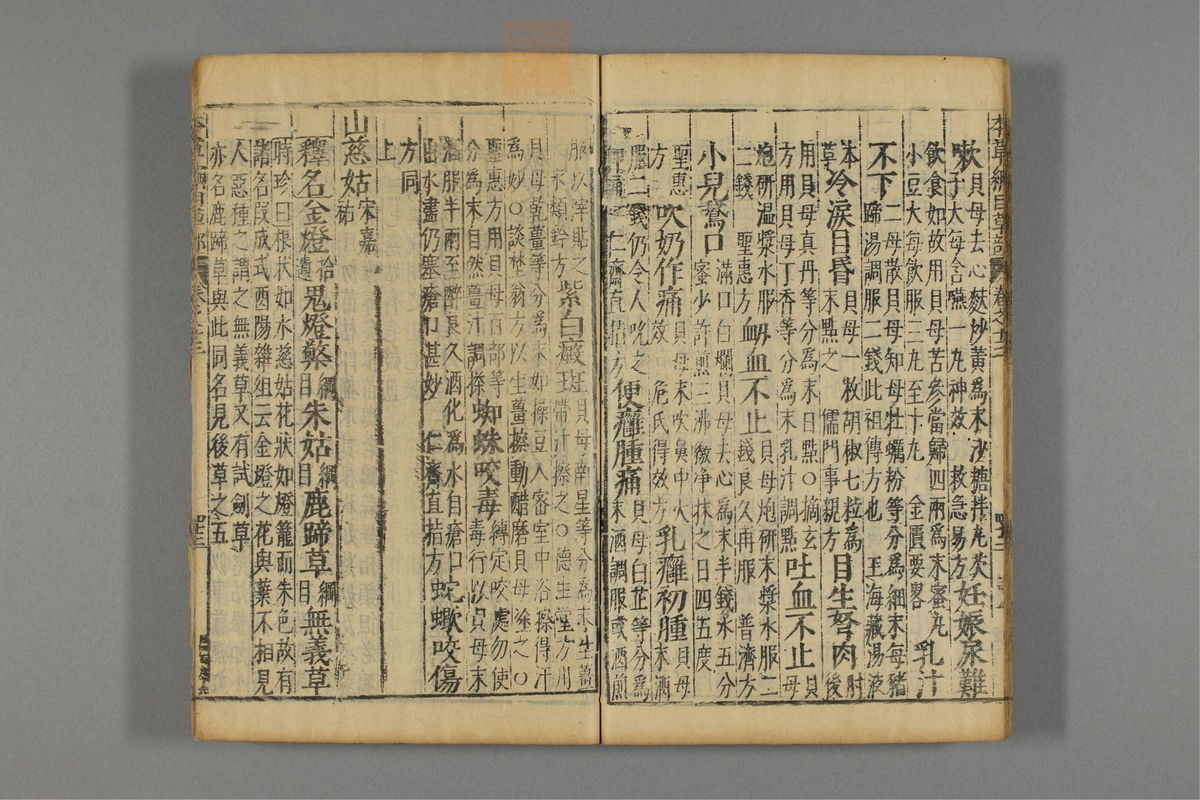 本草綱目草部 卷之十三 四十三
嗽貝母去心麩炒黃為末沙糖拌丸芡子大每含嚥一丸神效 救急易方妊娠尿難
飲食如故用貝母苦參當歸四兩為末蜜丸小豆大每飲服三丸至十丸 金匱要畧乳汁
不下二母散貝母知母牡蠣粉等分為細末每豬蹄湯調服二錢此祖傳方也 王海藏湯液
本草冷淚目昏貝母一枚胡椒七粒為末點之 儒門事親方目生弩肉肘後
用貝母真丹等分為末日點○摘玄方用貝母丁香等分為末乳汁調點吐血不止貝母
炮研温漿水服二錢 聖惠方衂血不止貝母炮研末漿水服二錢良久再服 普濟方
小兒鵞口滿口白爛貝母去心為末半錢水五分蜜少許煎三沸繳淨抹之日四五度
聖惠方吹奶作痛貝母末吹鼻中大效 危氏得效方乳癰初腫貝母末酒
服二錢仍令人吮之即通 仁齋直指方便癰腫痛貝母白芷等分為末酒調服或酒煎
服以滓貼之永類鈐方紫白癜斑貝母南星等分為末生薑帶汁擦之○德生堂方用
貝母乾薑等分為末如澡豆入密室中浴擦得汗為妙○談埜翁方以生薑擦動醋磨貝母塗之○
聖惠方用貝母百部等分為末自然薑汁調搽蜘蛛咬毒縛定咬處勿使毒行以貝母末
酒服半兩至醉良久酒化為水自瘡口出水盡仍塞瘡口甚妙 仁齋直指方蛇蠍咬傷
方同上
山慈姑宋嘉祐
釋名金燈拾遺鬼燈檠綱目朱姑綱目鹿蹄草綱目無義草
時珍曰根狀如水慈姑花狀如燈籠而朱色故有
諸名段成式酉陽雜俎云金燈之花與葉不相見
人惡種之謂之無義草又有試劍草
亦名鹿蹄草與此同名見後草之五